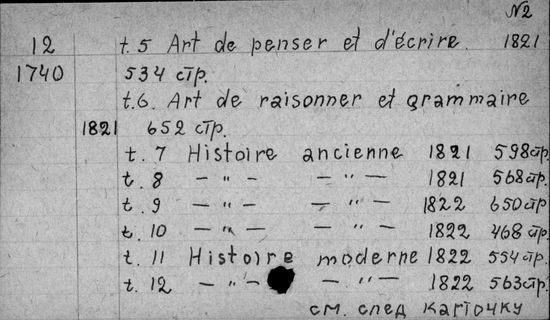 №2
12 t. 5 Art de penser et d'écrire. 1821
1740 534 стр.
t.6. Art de raisonner et grammaire
1821 652 стр.
t. 7 Histoire ancienne 1821 598стр.
t. 8 — " — — " — 1821 568стр.
t. 9 — " — — " — 1822 650стр
t. 10 — " — — " — 1822 468стр.
t. 11 Histoire moderne 1822 554стр.
t. 12 — " — — " — 1822 563стр.
см. след карточку